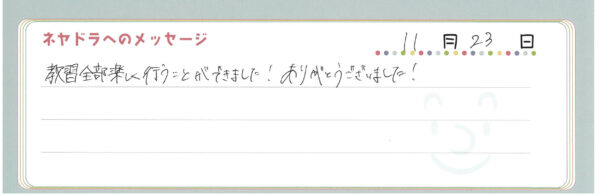 ネヤドラへのメッセージ
11月23日
教習全部楽しく行うことができました！ ありがとうございました！